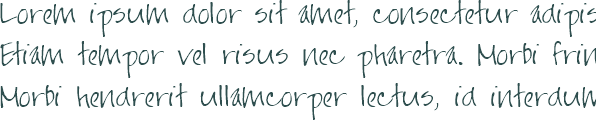 Lorem ipsum dolor sit amet, consectetur adipis
Etiam tempor vel risus nec pharetra. Morbi frin
Morbi hendrerit ullamcorper lectus, id interdum